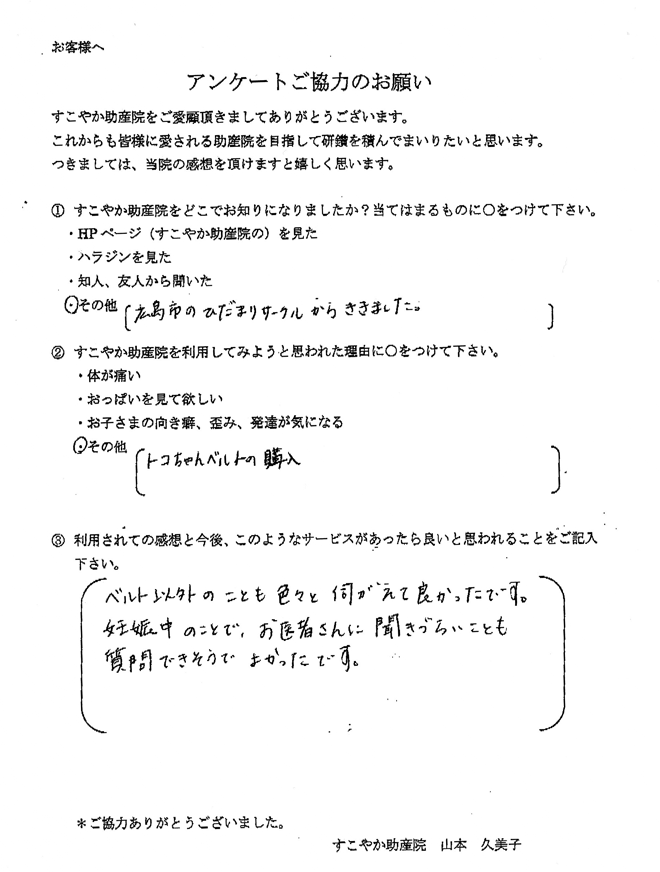 お客様へ
アンケートご協力のお願い
すこやか助産院をご愛顧頂きましてありがとうございます。
これからも皆様に愛される助産院を目指して研鑽を積んでまいりたいと思います。
つきましては、当院の感想を頂けますと嬉しく思います。
① すこやか助産院をどこでお知りになりましたか？当てはまるものに〇をつけて下さい。
・HPページ（すこやか助産院の）を見た
・ハラジンを見た
・知人、友人から聞いた
・その他 〔広島市のひだまりサークルからききました。〕
② すこやか助産院を利用してみようと思われた理由に〇をつけて下さい。
・体が痛い
・おっぱいを見て欲しい
・お子さまの向き癖、歪み、発達が気になる
・その他 〔トコちゃんベルトの購入〕
③ 利用されての感想と今後、このようなサービスがあったら良いと思われることをご記入
下さい。
ベルト以外のことも色々と伺がえて良かったです。
妊娠中のことで、お医者さんに聞きづらいことも
質問できそうでよかったです。
＊ご協力ありがとうございました。
すこやか助産院　山本　久美子